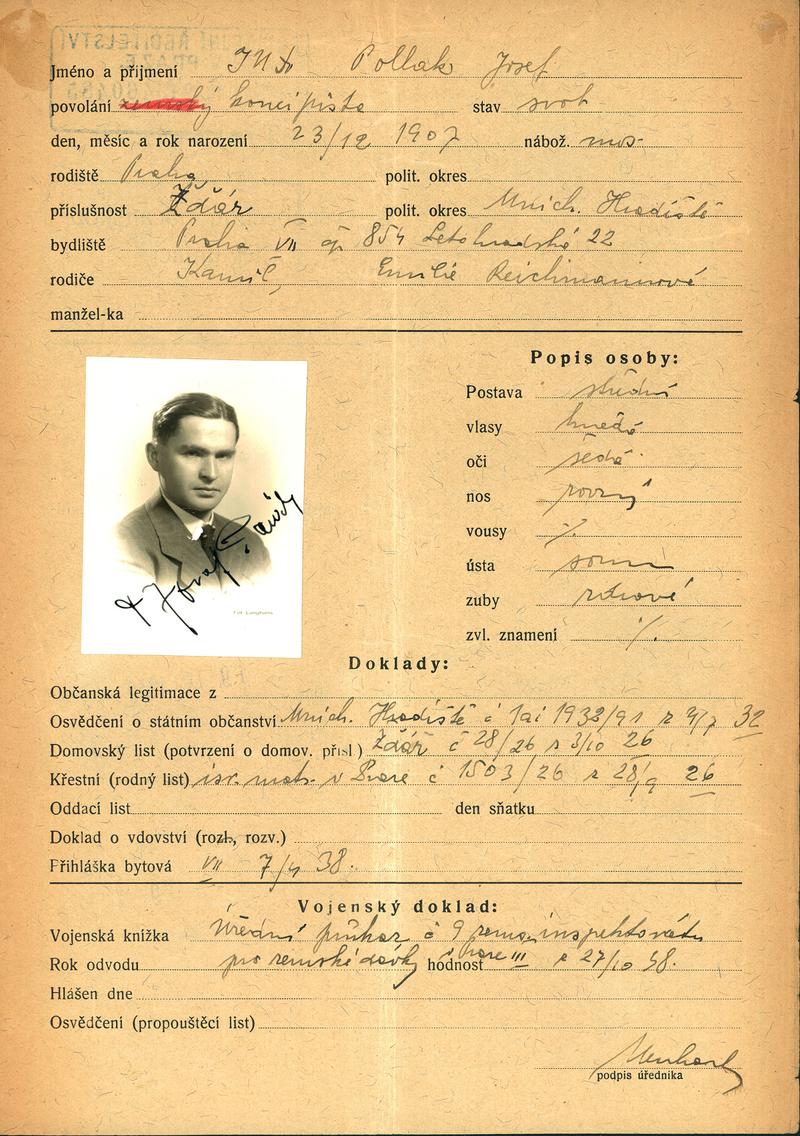 ŘEDITELSTVÍ
Jméno a přijmení JUDr Pollak Josef
povolání zemský koncipista stav svob
den, měsíc a rok narození 23/12 1907 nábož. mos-
rodiště Praha polit. okres
příslušnost Žďár polit. okres Mnich. Hradiště
bydliště Praha VII čp 854 Letohradská 22
rodiče Kamil, Emilie Reichmannová
manžel-ka
Popis osoby:
Postava střední
vlasy hnědé
oči šedé
nos rovný
vousy ⁒
ústa soum
zuby zdravé
zvl. znamení ⁒
Josef
Fot. Langhans
Doklady:
Občanská legitimace z
Osvědčení o státním občanství Mnich. Hradiště č 1ai 1932/91 z 4/7 32
Domovský list (potvrzení o domov. přísl.) Žďár č 28/26 z 3/10 26
Křestní (rodný list) isr. matr. v Praze č 1503/26 z 28/9 26
Oddací list den sňatku
Doklad o vdovství (rozh, rozv.)
Přihláška bytová VII 7/4 38.
Vojenský doklad:
Vojenská knížka Úřední průkaz č 9 zems. inspektorátu
Rok odvodu pro zemské dávky v Praze III hodnost z 27/10 38.
Hlášen dne
Osvědčení (propouštěcí list)
podpis úředníka